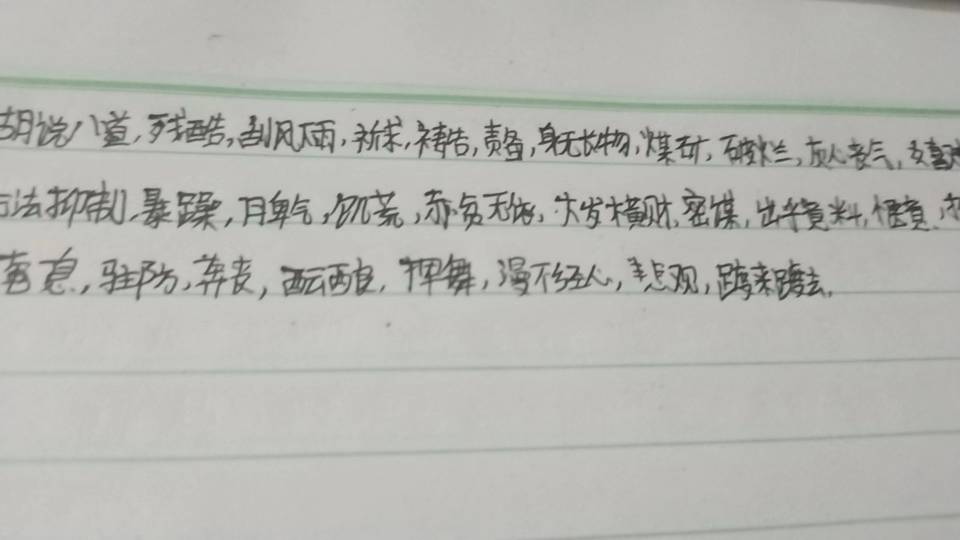 胡说八道,残酷,刮风下雨,祈求,祷告,责备,身无长物,煤矿,破烂,灰心丧气,嘉
法抑制,暴躁,脾气,饥荒,赤贫无依,大发横财,密谋,出乎意料,惬意,
息,驻防,奔丧,酝酿,挥舞,漫不经心,悲观,踱来踱去,